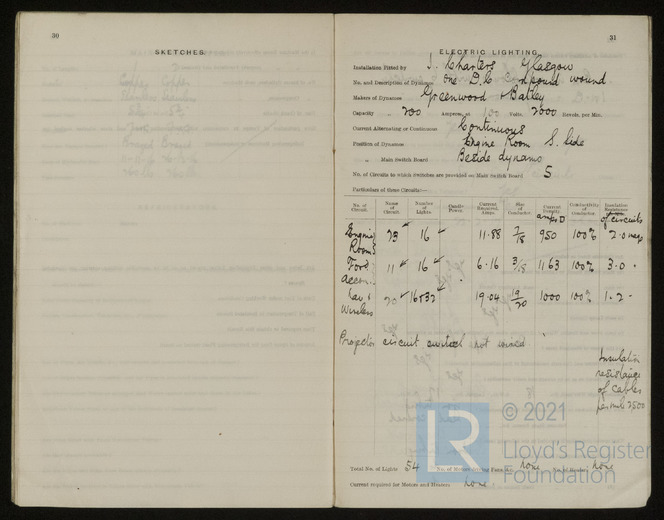 30
SKETCHES.
31
ELECTRIC LIGHTING.
Installation fitted by J. Charters Glasgow
No. and Description of Dynamos one D.C compound wound
Makers of Dynamos Greenwood & Batley
Capacity 200 Amperes, at 100 Volts, 2000 Revols. per Min.
Current Alternating or Continuous Continuous
Position of Dynamos Engine Room S. Side
" Main Switch Board Beside dynamo
No. of Circuits to which Switches are provided on Main Switch Board 5
Particulars of these Circuits:—
No. of Circuit. Name of Circuit. Number of Lights. Candle Power. Current Required. Amps. Size of Conductor. Current Density. Conductivity of Conductor. Insulation Resistance
of circuits
Engine Room 23 16 11.88 7/18 950 100% 2.0 meg
Ford accom. 11 16 6.16 3/18 1163 100% 3.0 "
Nav & Wireless 20 16 & 32 19.04 19/20 1000 100% 1.2 "
Projector circuit not wired
Insulation
resistance
of cables
per mile 2500
© 2021
LR
Lloyd's Register
Foundation
Total No. of Lights 54 No. of Motors driving Fans, &c. None No. of Heaters None
Current required for Motors and Heaters None